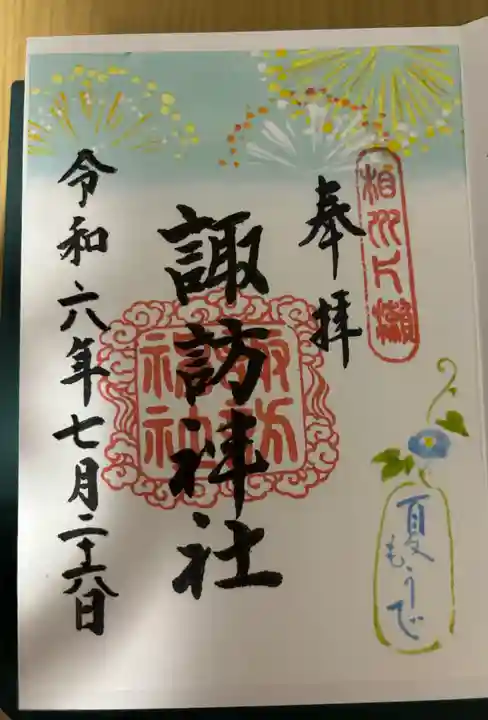 相州片瀬
奉拝
夏もうで
諏訪神社
諏訪神社
令和六年七月二十六日